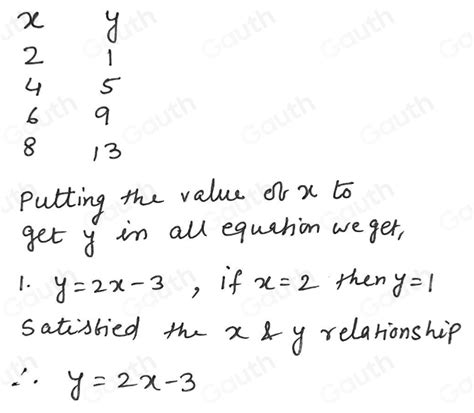 x y
2 1
4 5
6 9
8 13
Putting the value of x to
get y in all equation we get,
1. y=2x-3 , if x=2 then y=1
Satisfied the x & y relationship
∴ y=2x-3